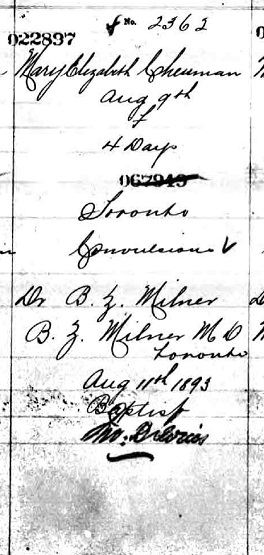 No. 2362
022897
Mary Elizabeth Chenman
Aug 9th
F
4 Days
067943
Toronto
Convulsions
Dr B. Z. Milner
B. Z. Milner M D
Toronto
Aug 11th 1893
Baptist